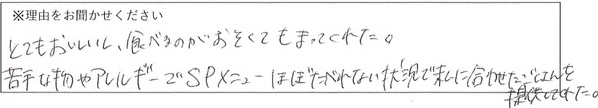 ※理由をお聞かせください
とてもおいしいし、食べるのがおそくてもまってくれた。
苦手な物やアレルギーでSPメニューほぼたべれない状況で私に合わせたごはんを
提供してくれた。